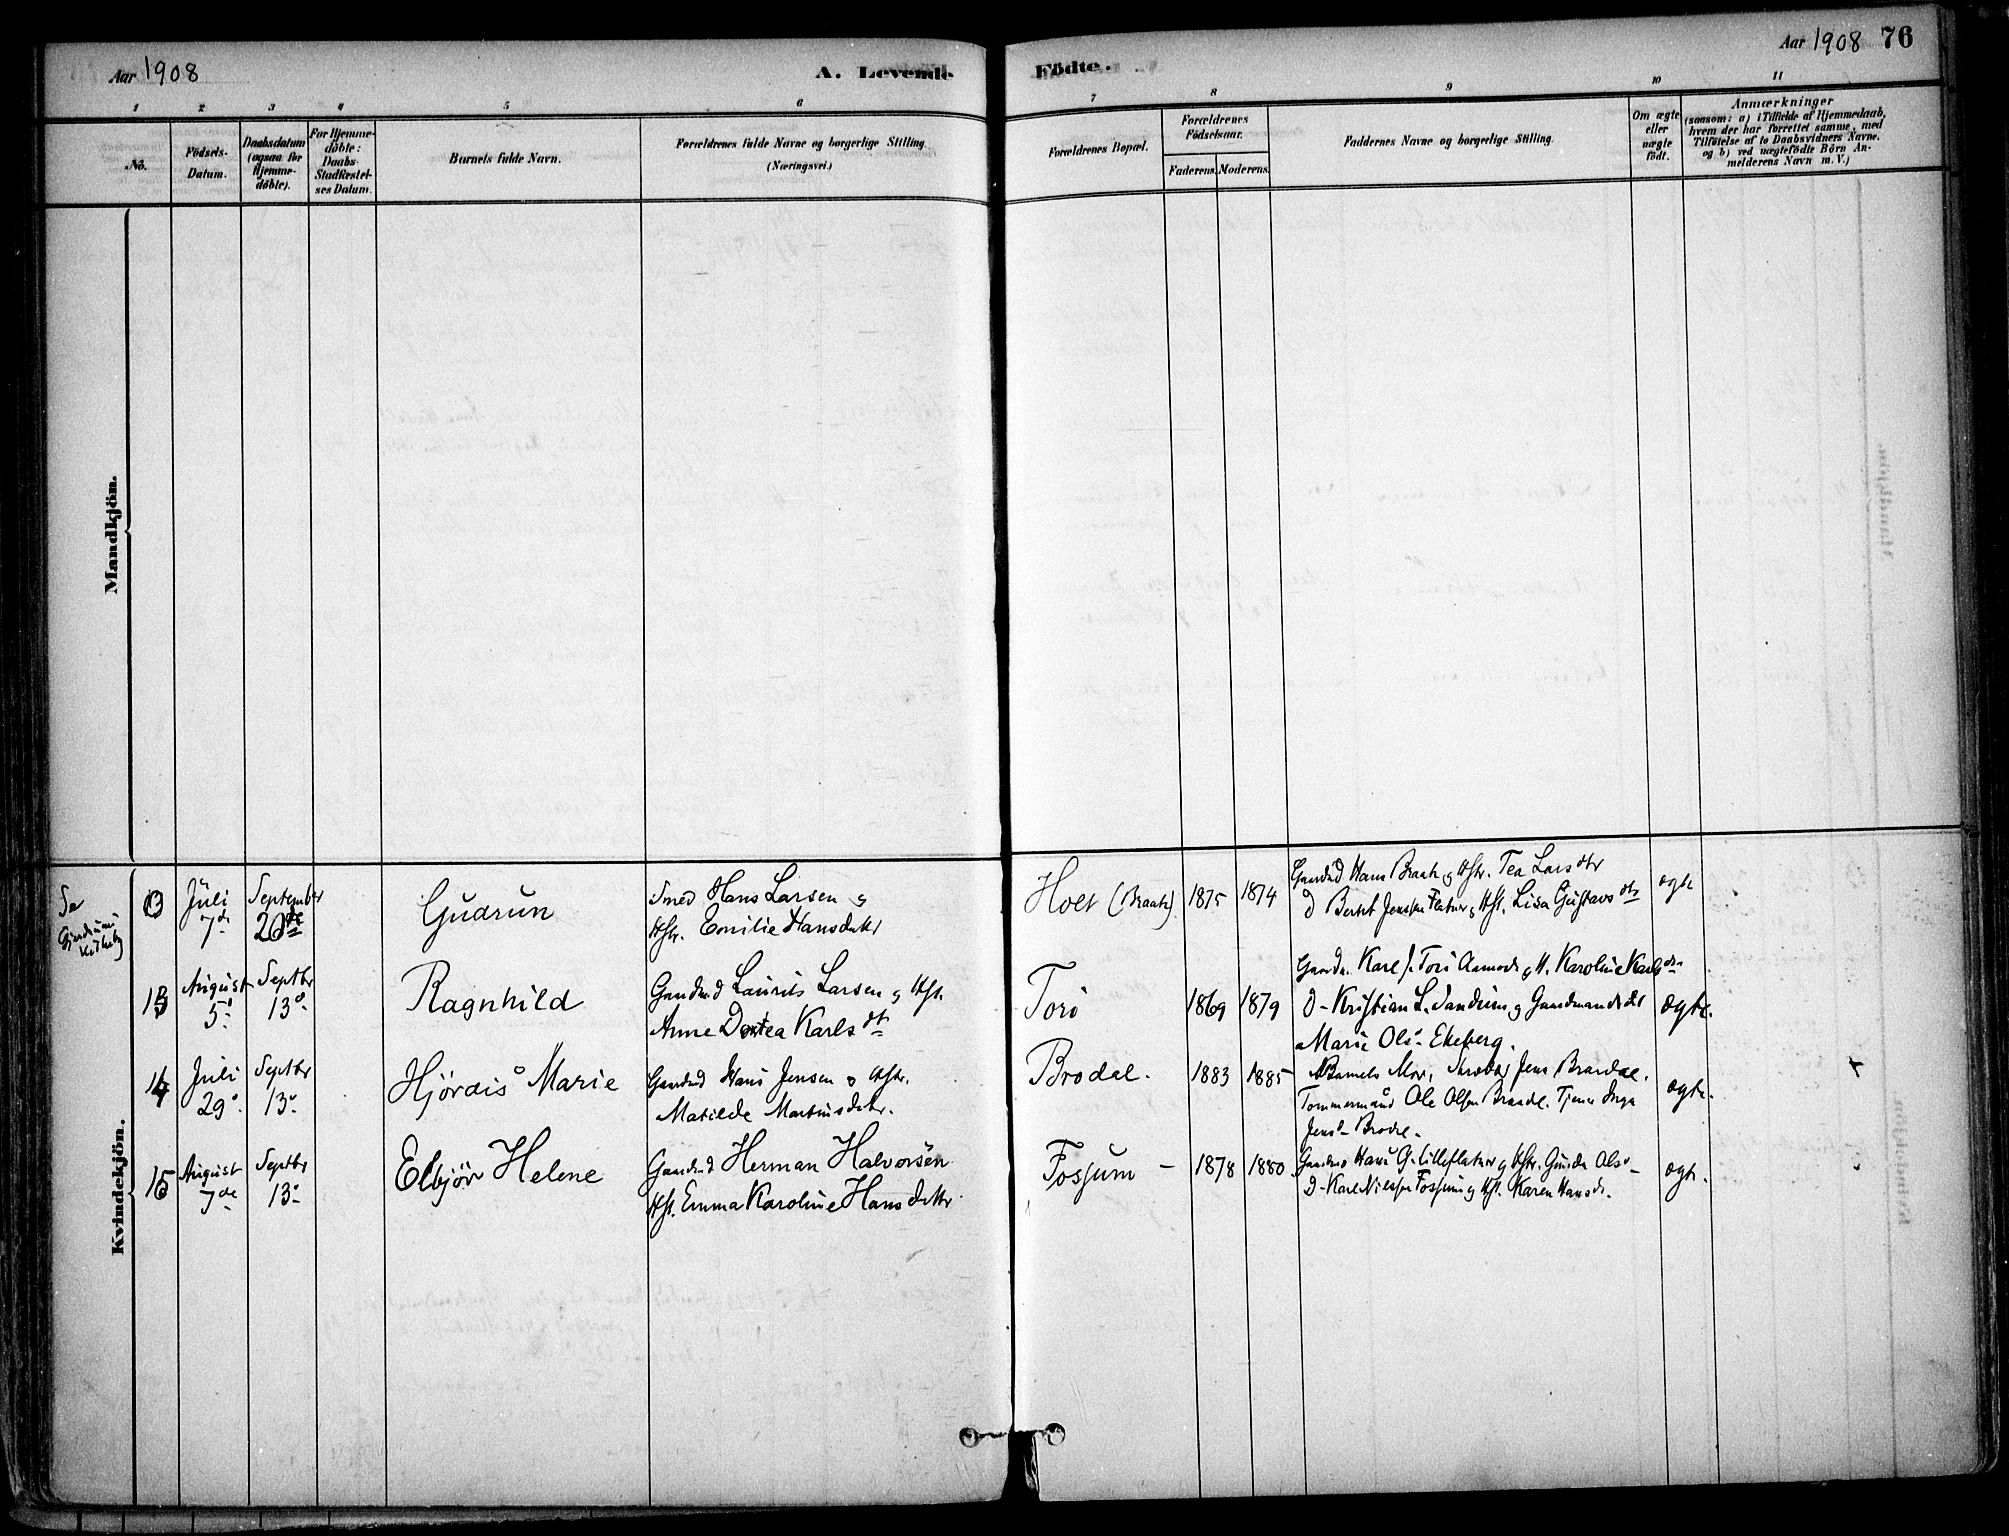 Aar 1908
A. Levende
Födte.
Aar 1908 76
1 2 3 4 5 6 7 8 9 10 11
No.
Födsels-
Datum.
Daabsdatum
(ogsaa for
Hjemme-
döbte).
For Hjemme-
döbte:
Daabs-
Stadfæstel-
ses Datum.
Barnets fulde Navn.
Forældrenes fulde Navne og borgerlige Stilling.
(Næringsvei.)
Forældrenes Bopæl.
Forældrenes
Födselsaar.
Faderens. Moderens.
Faddernes Navne og borgerlige Stilling.
Om ægte
eller
uægte
födt.
Anmærkninger
(saasom: a) i Tilfælde af Hjemmedaab,
hvem der har forrettet samme, med
Tilföielse af to Daabsvidners Navne.
og b) ved uægtefödte Börn An-
melderens Navn m. V.)
Mandkjön.
Kvindekjön.
Se
Juli
7de
September
20de
Gudrun
Smed Hans Larsen og
Hstr. Emilie Hansdatter
Holt (Braate)
1875
1874
Gaardbr Hans Braate og Hstr. Tea Larsdtr
D Bertel Jensen Flatner og Hst. Lisa Gustavsdtr
ægte
13
August
5.
Septbr
13.
Ragnhild
Gaardbr Laurits Larsen og Hst.
Anne Dortea Karlsdtr
Tori
1869
1879
Gaardbr. Karl J. Tori Aamodt og H. Karoline Karlsdtr
D- Kristian L. Sandum og Gaardmandsdtr
Marie Ols- Ekeberg.
ægte.
14
Juli
29.
Septbr
13.
Hjördis Marie
Gaardbr Hans Jensen og Hstr.
Matilde Martinsdatter.
Brodal.
1883
1885
Barnets Mor, Jens Braadal.
Tømmermand Ole Olsen Braadal. Tjener Inga
Jens- Brodal.
ægte.
15
August
7de
Septbr
13.
Elbjör Helene
Gaardbr Herman Halvorsen
Hst. Emma Karoline Hansdatter
Fossum -
1878
1880
Gaardbr Hans G. Lilleflatner og Hstr. Gunda Ols-
D- Karl Nilsen Fossum og Hst. Karen Hansdtr.
ægte.